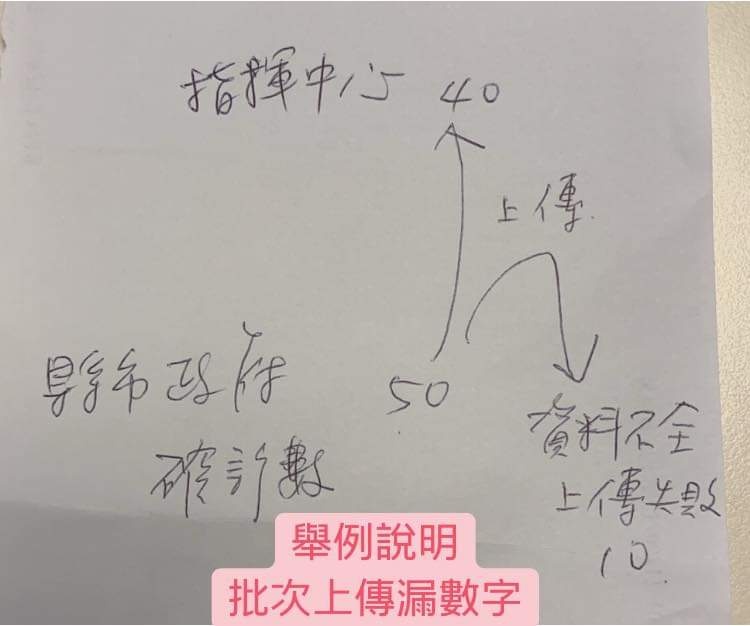 指揮中心 40
上傳
縣市政府 50
確診數
資料不全
上傳失敗
10
舉例說明
批次上傳漏數字